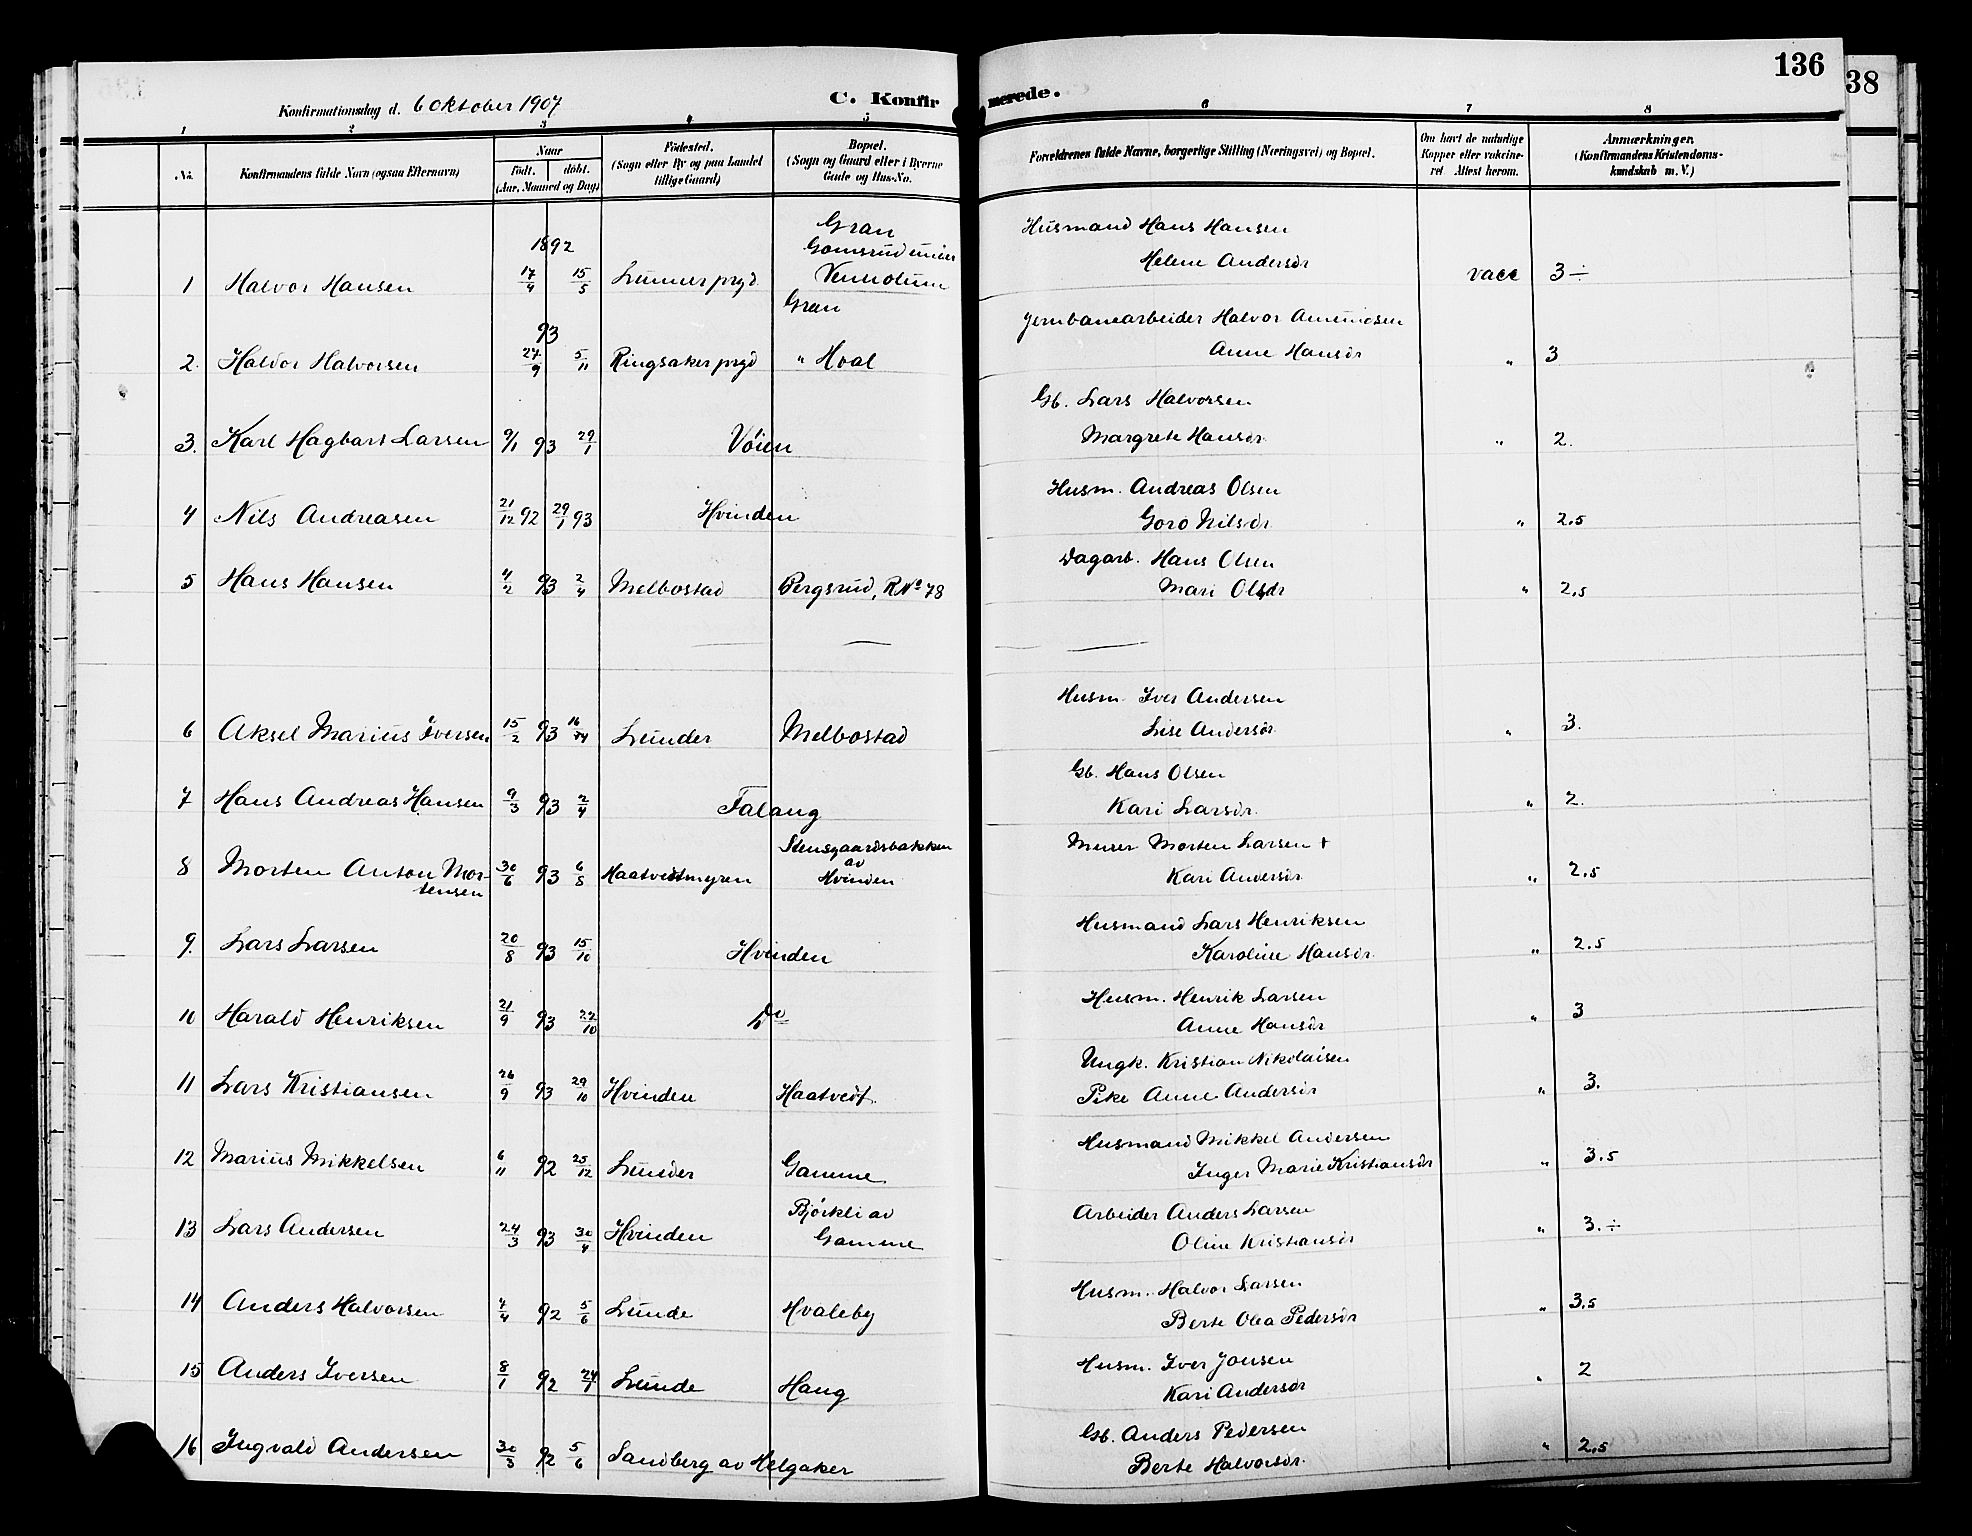 136
38
Konfirmationsdag d. 6 Oktober 1907
C. Konfirmerede.
1 2 3 4 5 6 7 8
No.
Konfirmandens fulde Navn (ogsaa Efternavn)
Naar
födt. döbt.
(Aar, Maaned og Dag)
Födested.
(Sogn eller By og paa Landet
tillige Gaard)
Bopæl.
(Sogn og Gaard eller i Byerne
Gade og Hus-No.
Forældrenes fulde Navne, borgerlige Stilling (Næringsvei) og Bopæl.
Om havt de naturlige
Kopper eller vakcine-
ret Attest herom.
Anmærkninger.
(Konfirmandens Kristendoms-
kundskab m. V.)
Gran
1892 Gomsrud under Husmand Hans Hansen
1 Halvor Hansen 17/4 15/5 Lunner prgd. Vennolum Helene Andersdr vacc 3÷
Gran
93 Jernbanearbeider Halvor Amundsen
2. Halvor Halvorsen 27/9 5/11 Ringsaker prgd " Hval Anne Hansdr " 3
Gb. Lars Halvorsen
3. Karl Hagbart Larsen 9/1 93 29/1 Vöien Margrete Hansdr. " 2.
Husm. Andreas Olsen
4 Nils Andreasen 21/12 92 29/1 93 Hvinden Goro Nilsdr " 2.5
Dagarb. Hans Olsen
5 Hans Hansen 4/2 93 2/4 Melbostad Bergsrud, RNo 78 Mari Olsdr " 2.5
Husm. Iver Andersen
6 Aksel Marius Iversen 15/2 93 16/4 Lunder Melbostad Lise Andersdr. " 3.
Gb. Hans Olsen
7 Hans Andreas Hansen 9/3 93 2/4 Falang Kari Larsdr. " 2.
Stensgaardsbakken Murer Morten Larsen +
av
8 Morten Anton Mor- 30/6 93 6/8 Haatvedtmyren Hvinden Kari Andersdr " 2.5
tensen
Husmand Lars Henriksen
9. Lars Larsen 20/8 93 15/10 Hvinden Karoline Hansdr. " 2.5
Husm. Henrik Larsen
10 Harald Henriksen 21/9 93 22/10 Do Anne Hansdr " 3
Ungk. Kristian Nikolaisen
11 Lars Kristiansen 26/9 93 29/10 Hvinden Haatvedt. Pike Anne Andersdr " 3.
Husmand Mikkel Andersen
12 Marius Mikkelsen 6/11 92 25/12 Lunder Gamme Inger Marie Kristiansdr " 3.5
Björkli av Arbeider Anders Larsen
13 Lars Andersen 24/3 93 30/4 Hvinden Gamme Oline Kristiansdr " 3.÷
Husm. Halvor Larsen
14 Anders Halvorsen 4/4 92 5/6 Lunde Hvaleby Berte Olea Pedersdr " 3.5
Husm. Iver Jonsen
15 Anders Iversen 8/1 92 24/1 Lunde Haug Kari Andersdr " 2
Gb. Anders Pedersen
16 Ingvald Andersen 30/3 92 5/6 Sandberg av Helgaker Berte Halvorsdr. " 2.5